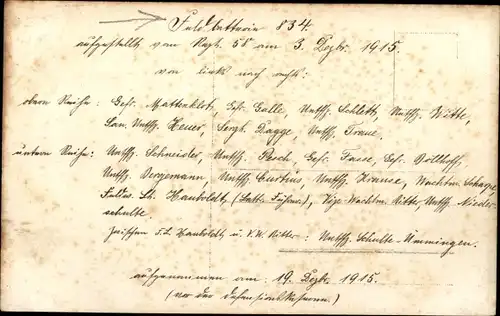 Feldbatterie 834.
aufgestellt vom Regt. 58 am 3. Dezbr. 1915.
von links nach rechts:
obere Reihe: Gefr. Mattenklot, Gefr. Galle, Untffz. Schlett, Untffz. Witte,
San. Untffz. Heuer, Sergt. Dagge, Untffz. Traue.
untere Reihe: Untffz. Schneider, Untffz. Pesch, Gefr. Fasse, Gefr. Bollhoff,
Untffz. Bergemann, Untffz. Curtius, Untffz. Krause, Wachtm. Scharpe,
Feldw. Lt. Hauboldt (Battr. Führer), Vize-Wachtm. Ritter, Untffz. Nieder-
schulte.
Zwischen F.L. Hauboldt u. V.W. Ritter: Untffz. Schulte-Ümmingen.
aufgenommen am 19. Dezbr. 1915.
(vor der Defensionskaserne.)